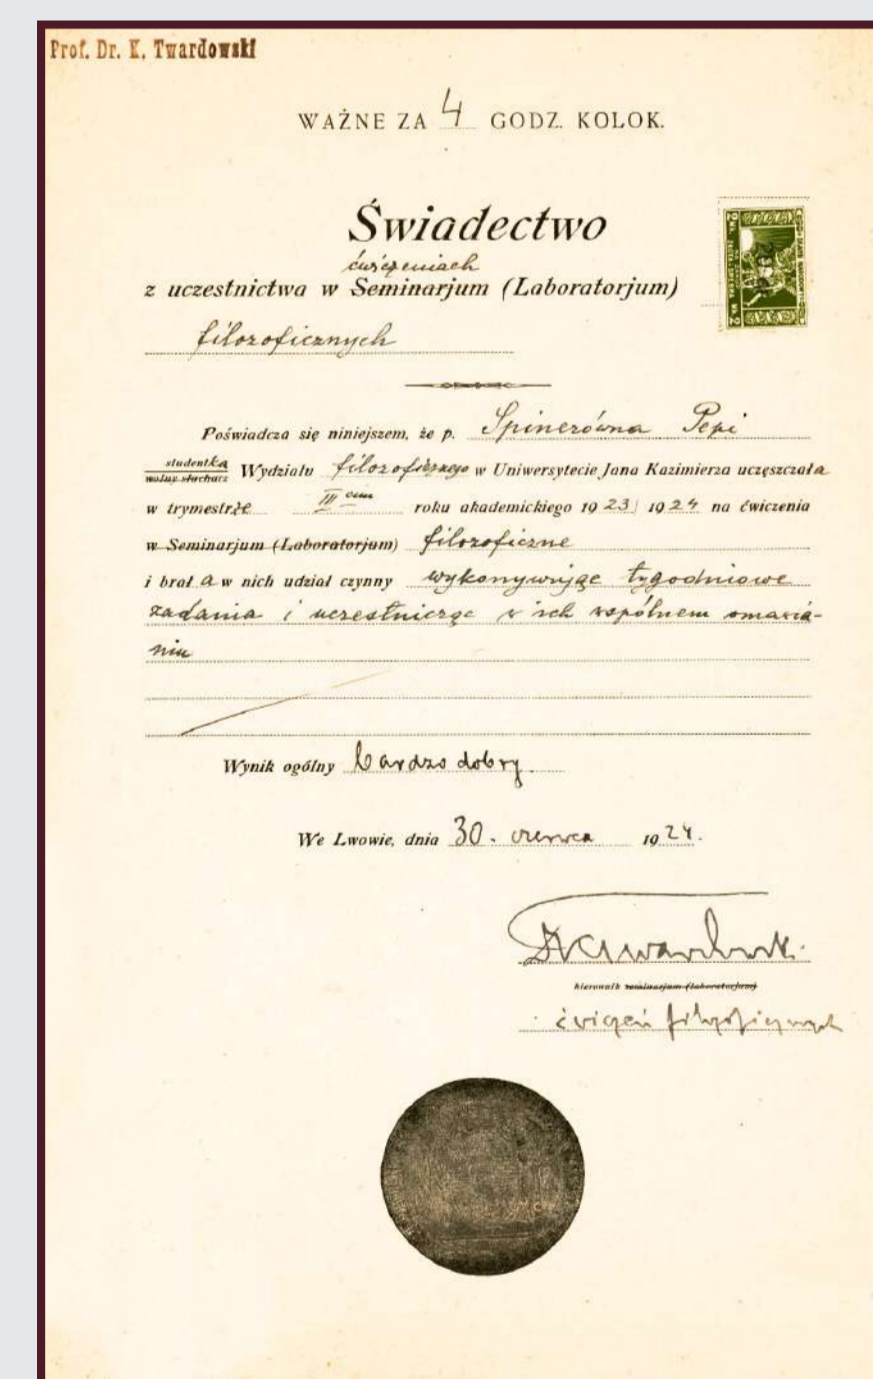 Prof. Dr. K. Twardowski
WAŻNE ZA 4 GODZ. KOLOK.
Świadectwo
ćwiczeniach
z uczestnictwa w Seminarjum (Laboratorjum)
filozoficznych
Poświadcza się niniejszem, że p. Spinerówna Pepi
studentka
wolny słuchacz Wydziału filozoficznego w Uniwersytecie Jana Kazimierza uczęszczała
w trymestrze III cim roku akademickiego 1923/1924 na ćwiczenia
w Seminarjum (Laboratorjum) filozoficzne
i brała w nich udział czynny wykonywując tygodniowe
zadania i uczestnicząc w ich wspólnem omawia-
niu
Wynik ogólny bardzo dobry.
We Lwowie, dnia 30. czerwca 1924.
KTwardowski
kierownik seminarjum (laboratorjum)
ćwiczeń filozoficznych